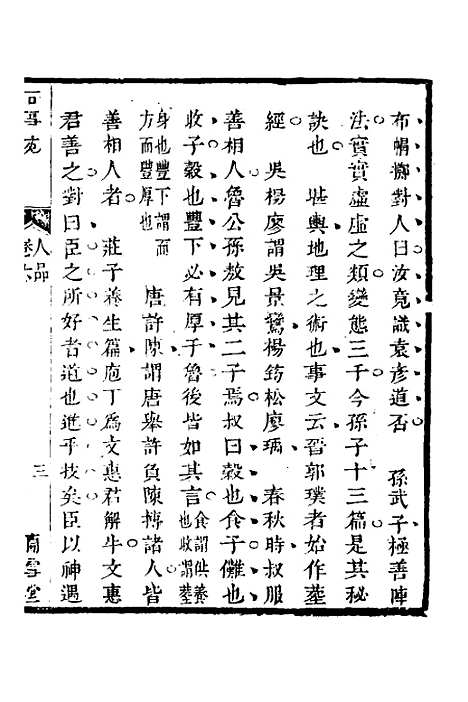 布帽擲對人曰汝竟識袁彥道否　孫武子極善陣
法實實虛虛之類變態三千今孫子十三篇是其秘
訣也　堪輿地理之術也事文云晉郭璞者始作葬
經　吳楊廖謂吳景鸞楊筠松廖瑀　春秋時叔服
善相人魯公孫敖見其二子焉叔曰穀也食子儺也
收子穀也豐下必有厚于魯後皆如其言食謂供養也收謂葬
身也豐下謂面方而豐厚也　唐許陳謂唐舉許負陳摶諸人皆
善相人者　莊子養生篇庖丁為文惠君解牛文惠
君善之對曰臣之所好者道也進乎技矣臣以神遇
人品
三
南雪堂